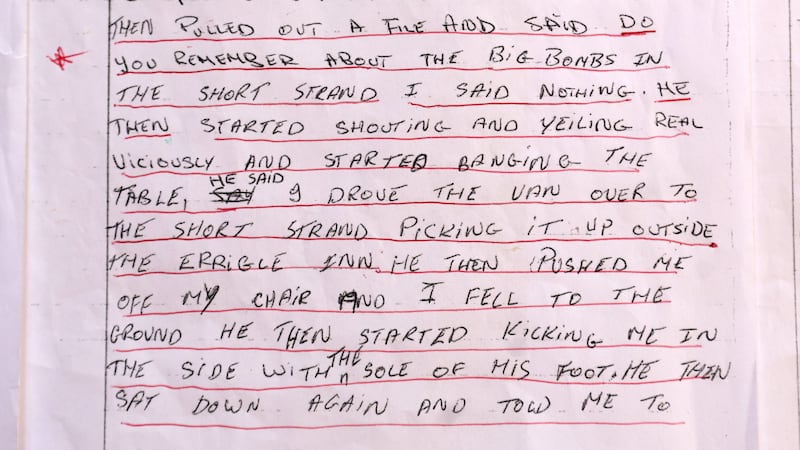 THEN PULLED OUT A FILE AND SAID DO
YOU REMEMBER ABOUT THE BIG BOMBS IN
THE SHORT STRAND I SAID NOTHING. HE
THEN STARTED SHOUTING AND YEILING REAL
VICIOUSLY AND STARTED BANGING THE
TABLE, HE SAID I DROVE THE VAN OVER TO
THE SHORT STRAND PICKING IT UP OUTSIDE
THE ERRIGLE INN. HE THEN PUSHED ME
OFF MY CHAIR AND I FELL TO THE
GROUND HE THEN STARTED KICKING ME IN
THE SIDE WITH THE SOLE OF HIS FOOT. HE THEN
SAT DOWN AGAIN AND TOLD ME TO